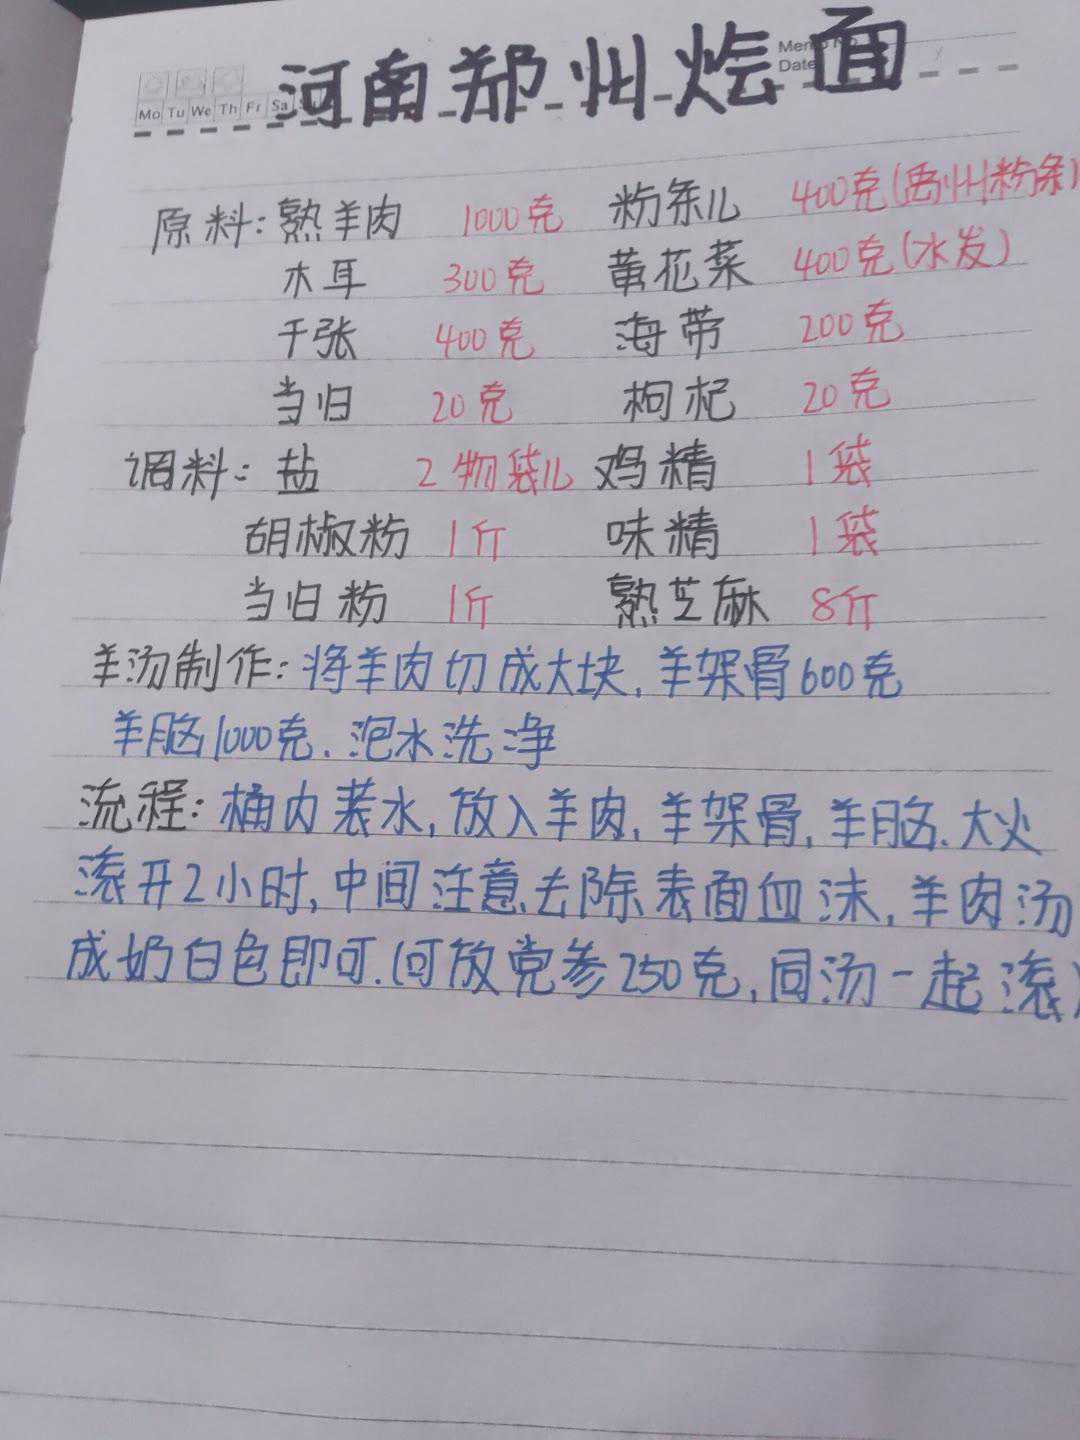 Memo No.
Date
Mo Tu We Th Fr Sa
河南郑州烩面
原料:熟羊肉 1000克 粉条儿 400克(禹州粉条)
木耳 300克 黄花菜 400克(水发)
千张 400克 海带 200克
当归 20克 枸杞 20克
调料:盐 2物袋儿 鸡精 1袋
胡椒粉 1斤 味精 1袋
当归粉 1斤 熟芝麻 8斤
羊汤制作:将羊肉切成大块,羊架骨600克
羊脑1000克.泡水洗净
流程:桶内装水,放入羊肉,羊架骨,羊脑.大火
滚开2小时,中间注意去除表面血沫,羊肉汤
成奶白色即可.(可放党参250克,同汤一起滚)